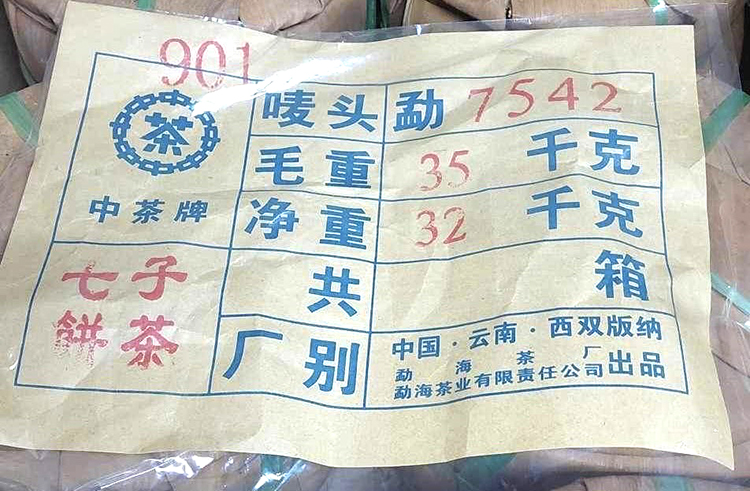 901
中茶牌
茶
唛头 勐7542
毛重 35 千克
净重 32 千克
七子
饼茶
共 箱
厂别 中国·云南·西双版纳
勐海茶厂
勐海茶业有限责任公司 出品